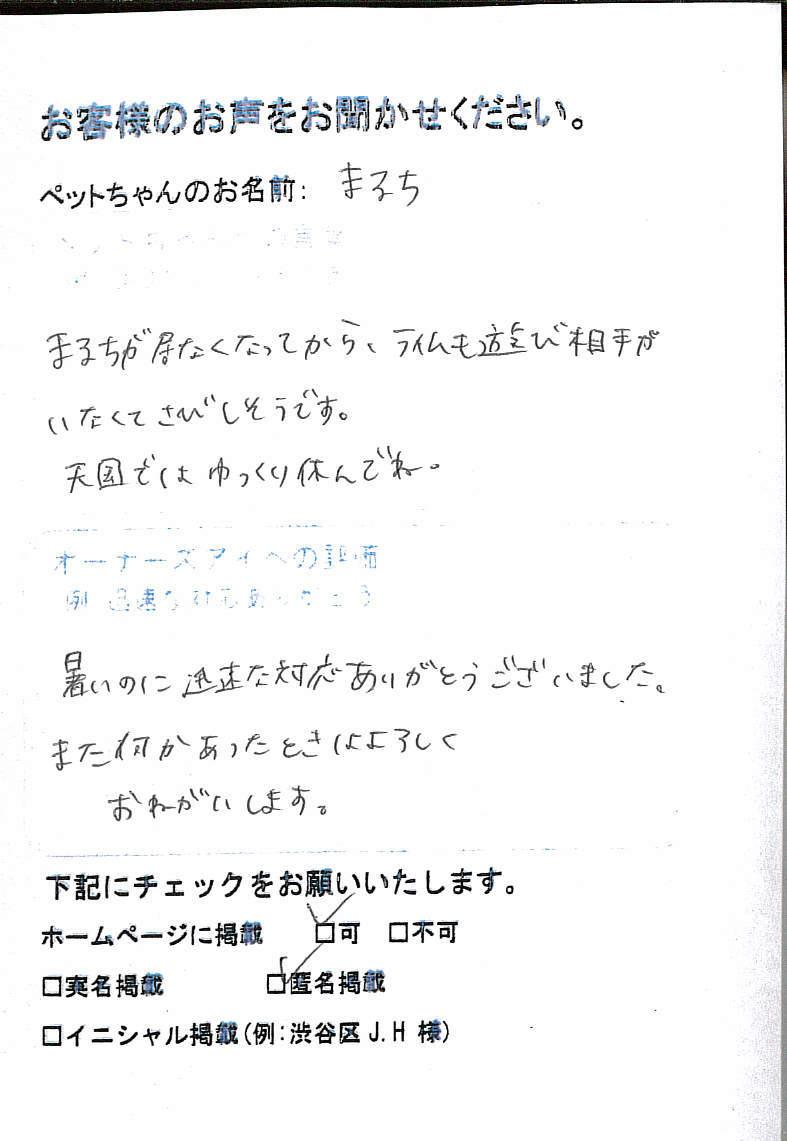 お客様のお声をお聞かせください。
ペットちゃんのお名前： まるち
まるちが居なくなってから、ライムも遊び相手が
いなくてさびしそうです。
天国ではゆっくり休んでね。
オーナーズアイへの評価
例 迅速な対応ありがとう
暑いのに迅速な対応ありがとうございました。
また何かあったときはよろしく
おねがいします。
下記にチェックをお願いいたします。
ホームページに掲載 ☑可 □不可
□実名掲載 ☑匿名掲載
□イニシャル掲載（例：渋谷区 J.H 様）